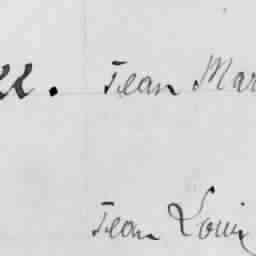 Jean Mar
Jean Louis